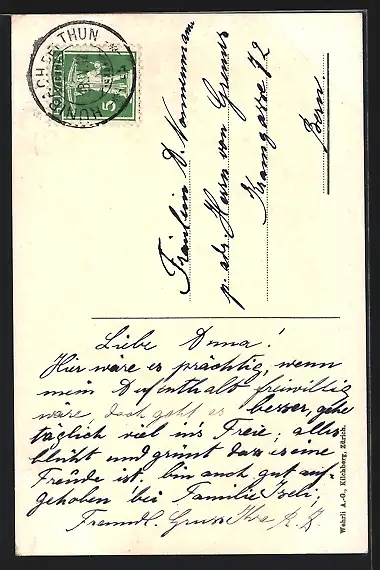 HOMBACH BEI THUN
HELVETIA
5
Fräulein D. Nonnenmann
p. adr. Herrn von Greierz
Kramgasse 72
Bern.
Liebe Anna!
Hier wäre es prächtig, wenn
mein Aufenthalt freiwillig
wäre, doch geht es besser, gehe
täglich viel in's Freie; alles
blüht und grünt dass es eine
Freude ist. bin auch gut auf-
gehoben bei Familie Iseli;
Freundl. Gruss Ihre R. Z.
Wehrli A.-G., Kilchberg, Zürich.